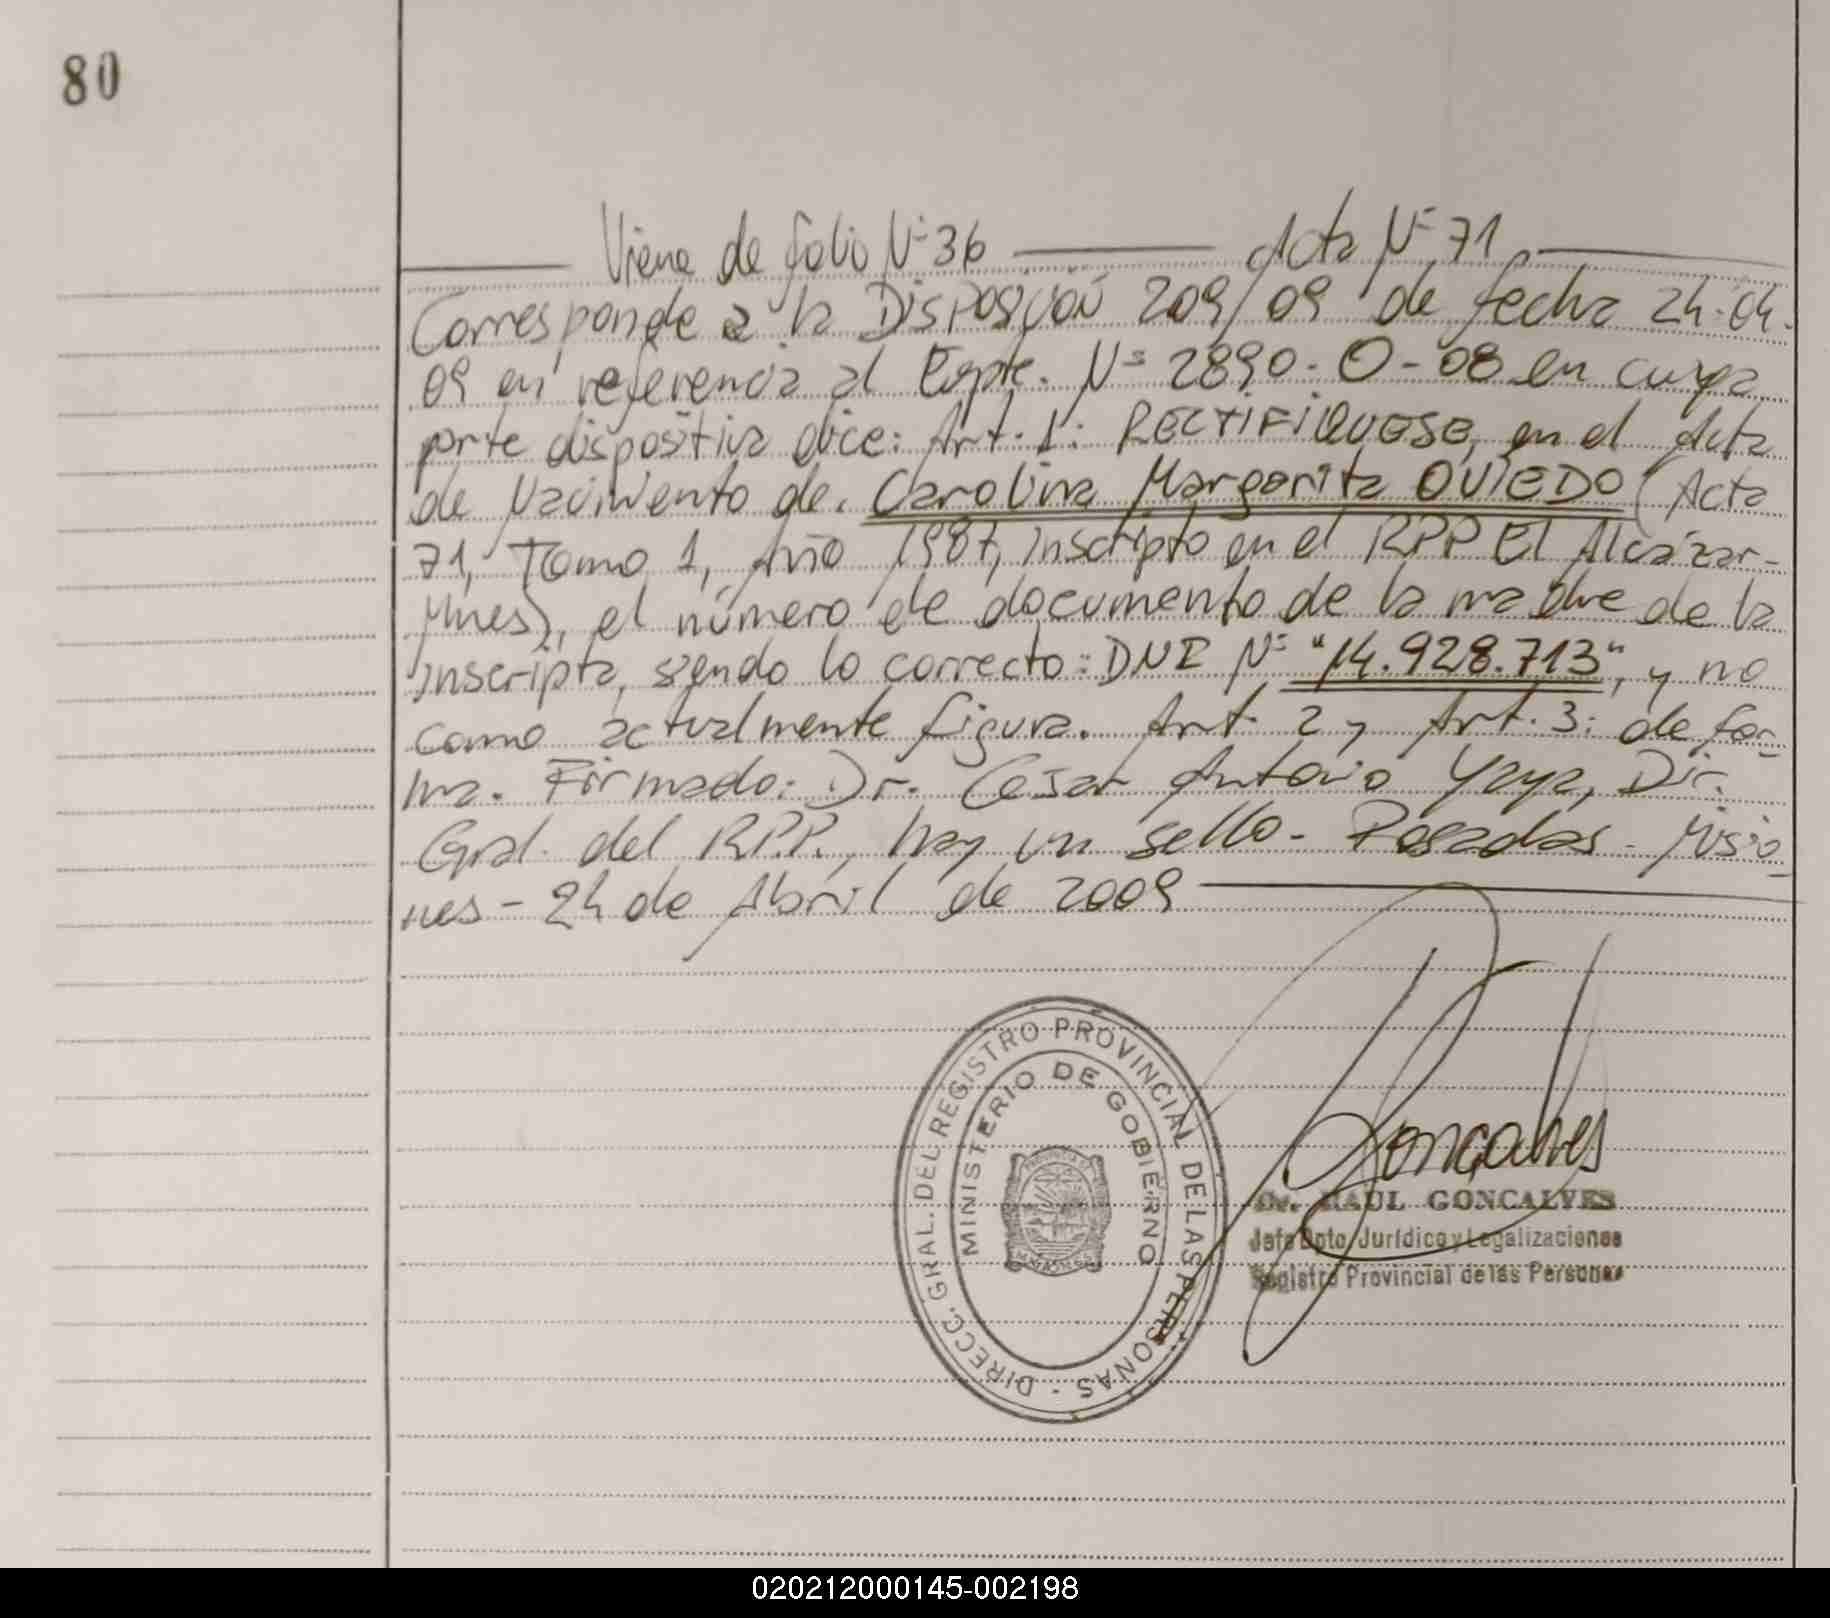 80
Viene de folio Nº 36 Acta Nº 71
Corresponde a la Disposición 209/09 de fecha 24-04-
09 en referencia al Expte. Nº 2890-O-08 en cuya
parte dispositiva dice: Art. 1: RECTIFIQUESE, en el Acta
de Nacimiento de. Carolina Margarita OVIEDO (Acta
71, Tomo 1, Año 1987, inscripto en el RPP El Alcázar-
Mnes), el número de documento de la madre de la
inscripta, siendo lo correcto: DNI Nº "14.928.713", y no
como actualmente figura. Art. 2 y Art. 3: de for-
ma. Firmado: Dr. Cesar Antonio Yaya, Dir.
Gral. del R.P.P., hay un sello - Posadas - Misio-
nes - 24 de Abril de 2009
DIRECC. GRAL. DEL REGISTRO PROVINCIAL DE LAS PERSONAS -
MINISTERIO DE GOBIERNO
PROVINCIA DE
MISIONES
Goncalves
Dr. RAUL GONCALVES
Jefe Dpto Jurídico y Legalizaciones
Registro Provincial de las Personas
020212000145-002198